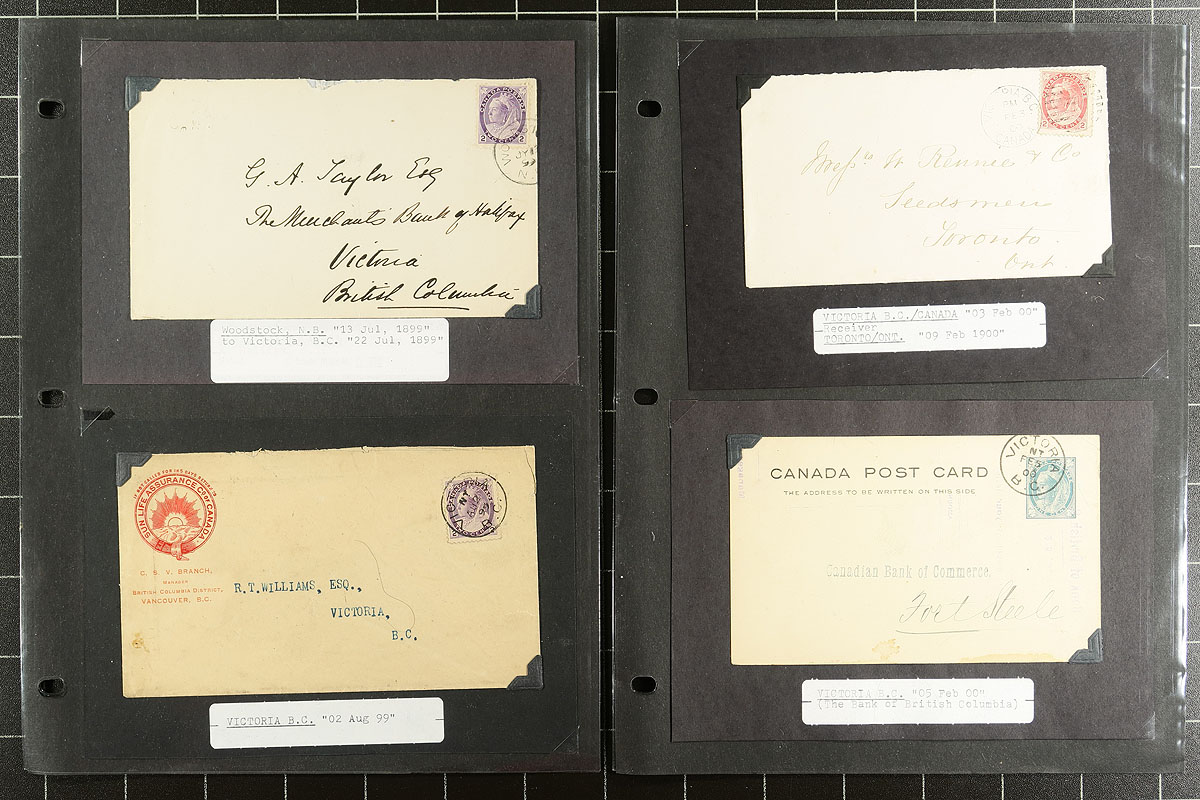 CANADA POSTAGE
2 2
TWO CENTS
G. A. Taylor Esq
The Merchants Bank of Halifax
Victoria
British Columbia
Woodstock, N.B. "13 Jul, 1899"
to Victoria, B.C. "22 Jul, 1899"
SUN LIFE ASSURANCE CO OF CANADA
C. S. V. BRANCH,
MANAGER
BRITISH COLUMBIA DISTRICT,
VANCOUVER, B.C.
R.T.WILLIAMS, ESQ.,
VICTORIA,
B.C.
VICTORIA B.C. "02 Aug 99"
CANADA POSTAGE
2 2
TWO CENTS
Messrs W Rennie & Co
Seedsmen
Toronto
Ont
VICTORIA B.C./CANADA "03 Feb 00"
Receiver
TORONTO/ONT. "09 Feb 1900"
CANADA POST CARD
THE ADDRESS TO BE WRITTEN ON THIS SIDE
VICTORIA
NT
FE 5
00
B.C.
Canadian Bank of Commerce
Fort Steele
VICTORIA B.C. "05 Feb 00"
(The Bank of British Columbia)